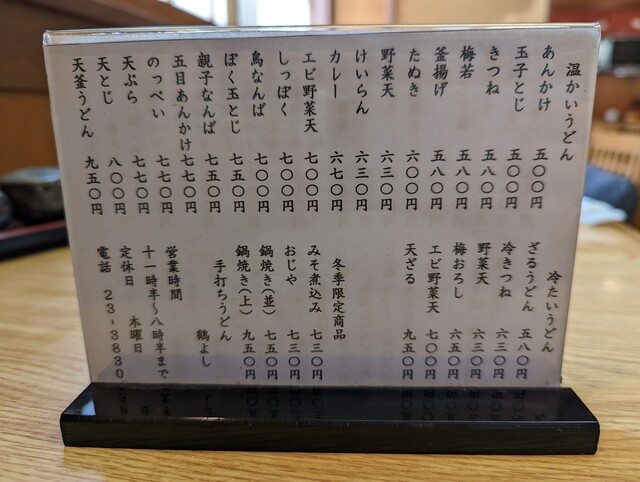 温かいうどん
あんかけ 五〇〇円
玉子とじ 五〇〇円
きつね 五八〇円
梅若 五八〇円
釜揚げ 五八〇円
たぬき 六〇〇円
野菜天 六三〇円
けいらん 六三〇円
カレー 六七〇円
エビ野菜天 七〇〇円
しっぽく 七〇〇円
鳥なんば 七〇〇円
ぼく玉とじ 七五〇円
親子なんば 七五〇円
五目あんかけ 七七〇円
のっぺい 七七〇円
天ぷら 七七〇円
天とじ 八〇〇円
天釜うどん 九五〇円
冷たいうどん
ざるうどん 五八〇円
冷きつね 六三〇円
野菜天 六三〇円
梅おろし 六五〇円
エビ野菜天 七〇〇円
天ざる 九五〇円
冬季限定商品
みそ煮込み 七三〇円
おじや 七三〇円
鍋焼き(並) 七五〇円
鍋焼き(上) 九五〇円
手打ちうどん 鶴よし
営業時間
十一時半〜八時半まで
定休日 木曜日
電話 23-3830